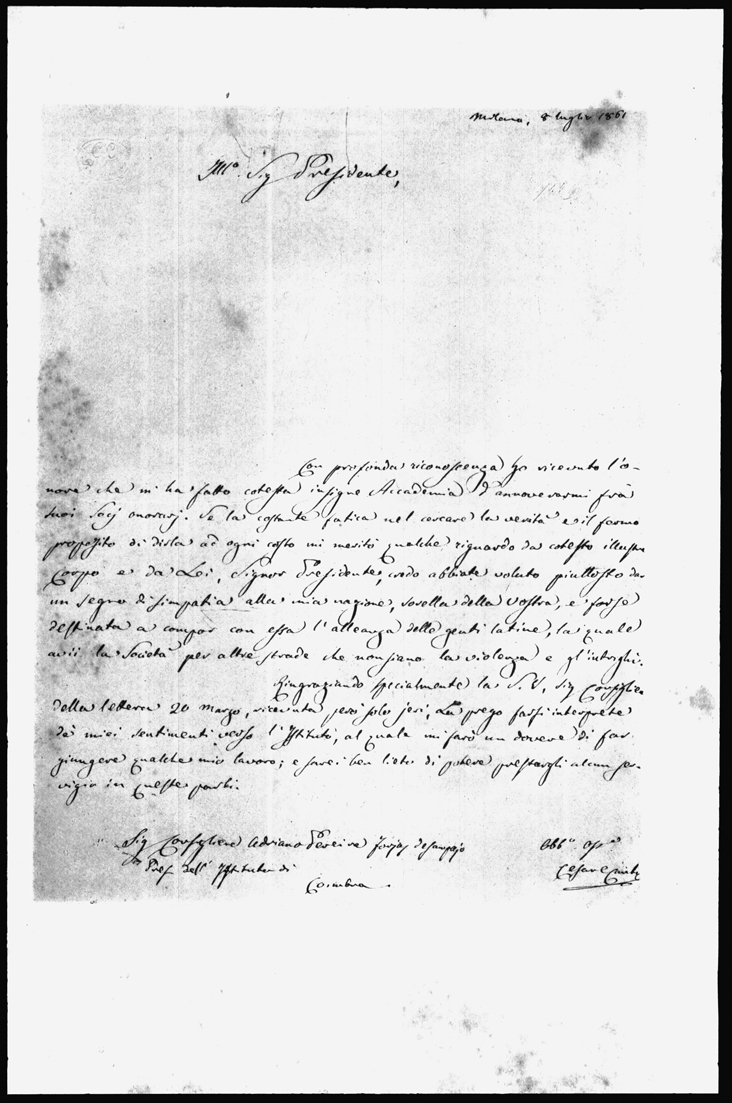 Milano, 8 luglio 1861
Ill.º Sig Presidente,
Con profonda riconoscenza ho ricevuto l'o-
nore che mi ha fatto cotessa insigne Accademia d'annoverarmi frà
suoi Socj onorarj. Se la costante fatica nel cercare la verità e il fermo
proposito di dirla ad ogni costo mi meritò qualche riguardo da cotesto illustre
Corpo e da Lei, Signor Presidente, credo abbiate voluto piuttosto dar
un segno di simpatia alla mia nazione, sorella della vostra, e forse
destinata a compor con essa l'alleanza delle genti latine, la quale
avii la Società per altre strade che non siano la violenza e gl'intrighi.
Ringraziando specialmente la S.V, Sig Consigliere
della lettera 20 marzo, ricevuta però solo jeri, La prego farsi interprete
de' miei sentimenti verso l'Istituto, al quale mi farò un dovere di far
giungere qualche mio lavoro; e sarei ben lieto di potere prestargli alcun ser-
vigio in queste parti.
Sig Consigliere Adriano Pereira Forjaz de Sampajo
Pres dell' Istituto di
Coimbra
Obb.º
Cesare Cantù